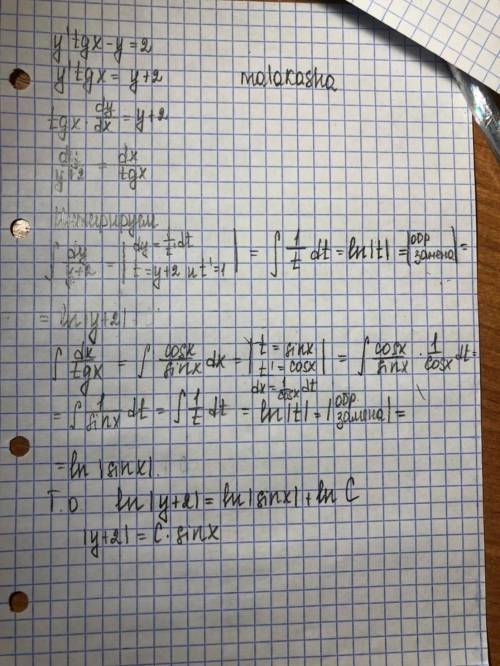 y' tgx - y = 2
y' tgx = y+2
malakasha
tgx · dy/dx = y+2
dy/(y+2) = dx/tgx
Интегрируем
∫ dy/(y+2) = | dy = 1/t' dt t = y+2 и t' = 1 | = ∫ 1/t dt = ln|t| = | обр замена | =
= ln|y+2|
∫ dx/tgx = ∫ cosx/sinx dx = | t = sinx t' = cosx dx = 1/cosx dt | = ∫ cosx/sinx · 1/cosx dt =
= ∫ 1/sinx dt = ∫ 1/t dt = ln|t| = | обр замена | =
= ln|sinx|.
Т.О. ln|y+2| = ln|sinx| + ln C
|y+2| = C · sinx